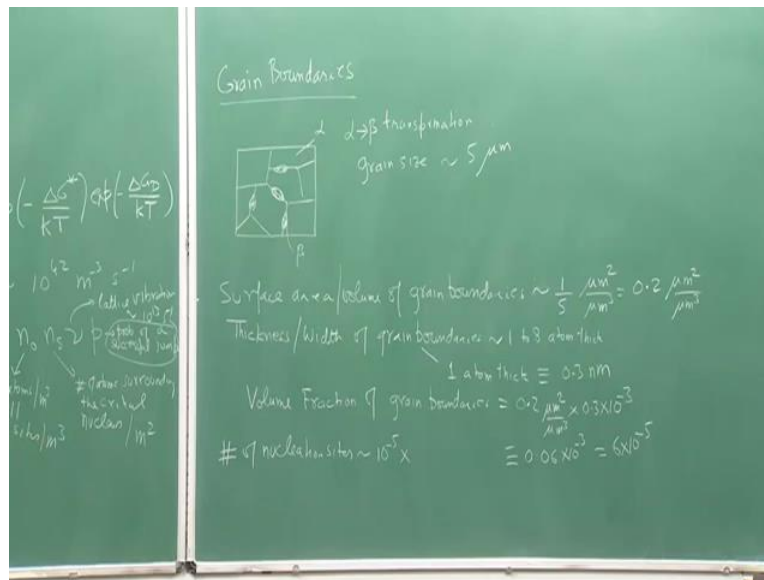 (-ΔG*/kT) exp(-ΔG_D/kT)
~ 10^42 m^-3 s^-1
lattice vibration
n_0 n_s ν p → prob of a
successful jump
atoms/m^3
sites/m^3
# atoms surrounding
the critical
nucleus/m^2
Grain Boundaries
α
α→β transformation
grain size ~ 5 μm
β
Surface area/volume of grain boundaries ~ 1/5 μm^2/μm^3 = 0.2 μm^2/μm^3
Thickness/Width of grain boundaries ~ 1 to 3 atom thick
1 atom thick ≡ 0.3 nm
Volume Fraction of grain boundaries = 0.2 μm^2/μm^3 × 0.3×10^-3
# of nucleation sites ~ 10^-5 x
≡ 0.06×10^-3 = 6×10^-5